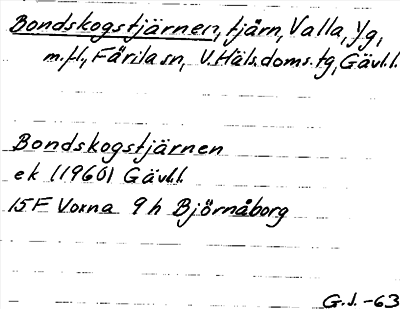 Bondskogstjärnen, tjärn, Valla, Yg,
m.fl., Färila sn, V. Häls. doms. tg, Gävl.l.
Bondskogstjärnen
ek (1960) Gävl.l.
15F Voxna 9h Björnåborg
G.J. -63